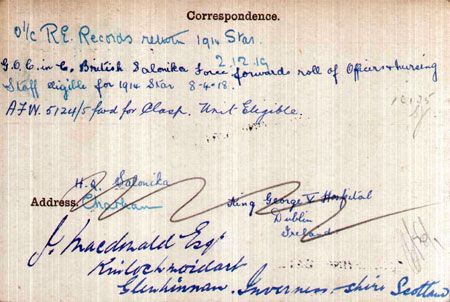 Correspondence.
O'/c R.E. Records return 1914 Star.
2.12.19
G.O.C. in C. British Salonika Force forwards roll of Officers & nursing
Staff eligible for 1914 Star 8-4-18.
A.F.W. 5124/5 fwd for Clasp. Unit Eligible.
H.Q. Salonika
Address Chatham
King George V Hospital
Dublin
Ireland
J. Macdonald Esqr
Kinlochmoidart
Glenfinnan. Inverness-shire Scotland